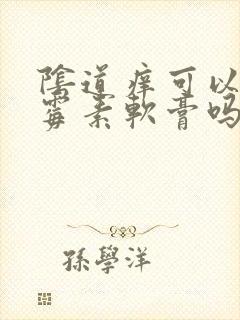 陰道痒可以
霉素軟膏吗
孫學洋